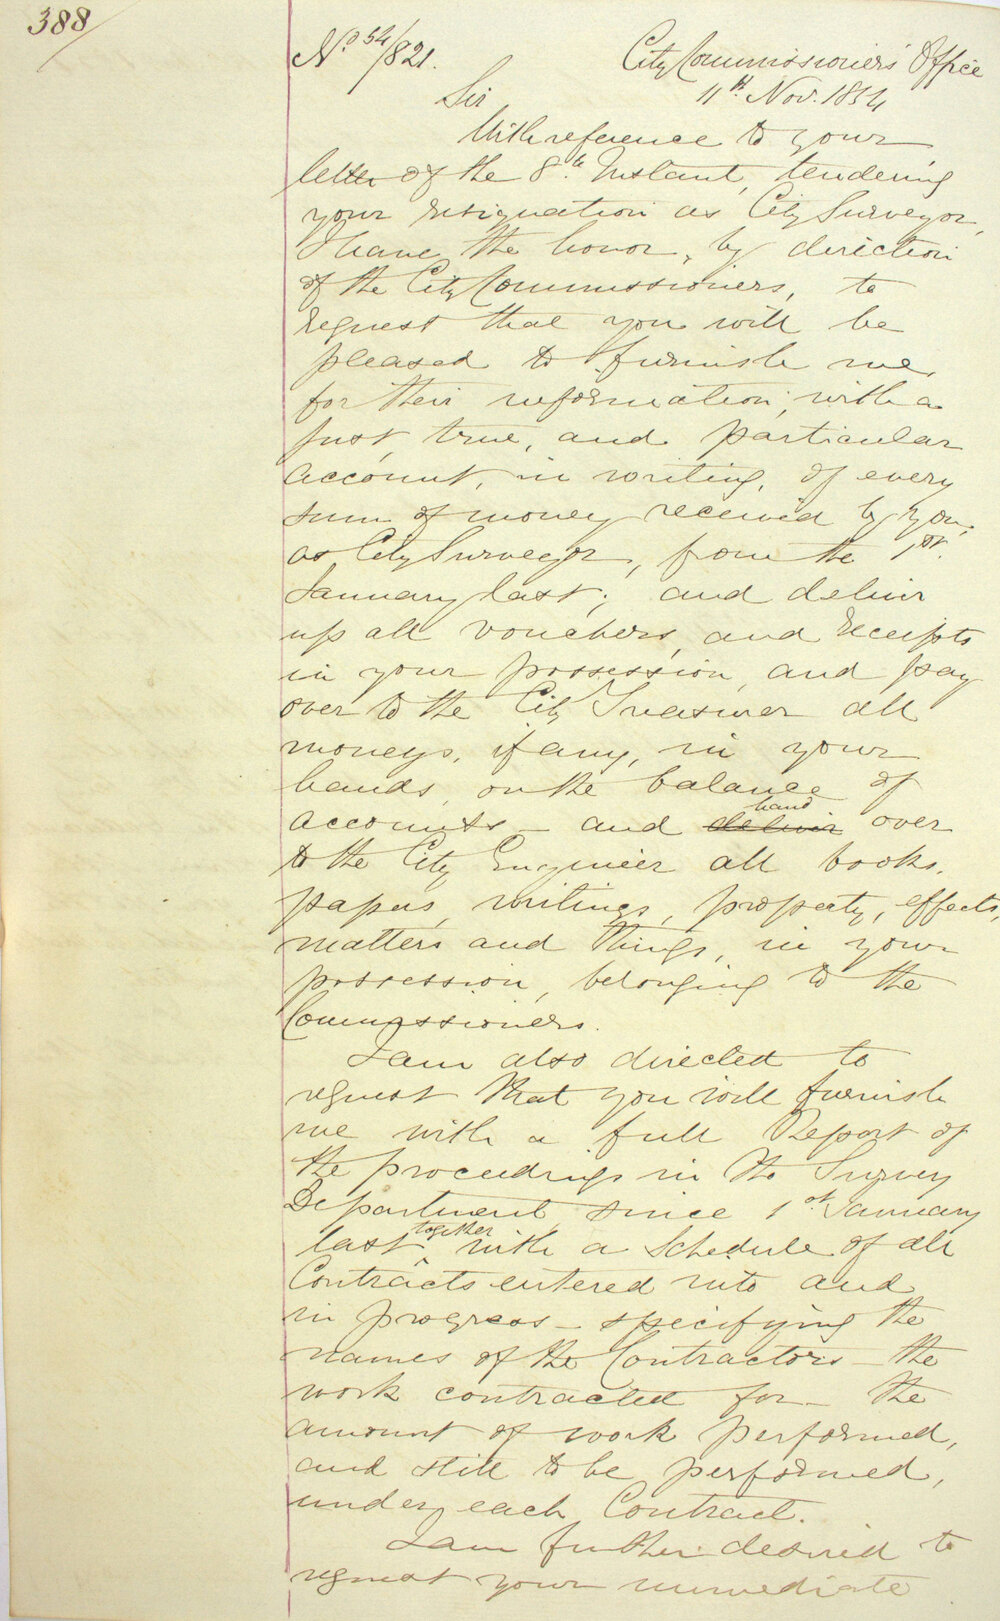 388
No 54/821.
City Commissioners' Office
11th Nov. 1854
Sir
With reference to your
letter of the 8th Instant, tendering
your resignation as City Surveyor,
I have the honor, by direction
of the City Commissioners, to
request that you will be
pleased to furnish me,
for their information, with a
just, true, and particular
account, in writing, of every
sum of money received by you,
as City Surveyor, from the 1st
January last; and deliver
up all vouchers, and receipts
in your possession, and pay
over to the City Treasurer all
moneys, if any, in your
hands, on the balance of
accounts - and deliver hand over
to the City Engineer all books,
papers, writings, property, effects,
matters and things, in your
possession, belonging to the
Commissioners.
I am also directed to
request that you will furnish
me with a full Report of
the proceedings in the Survey
Department since 1st January
last together with a Schedule of all
Contracts entered into and
in progress - specifying the
names of the Contractors - the
work contracted for - the
amount of work performed,
and still to be performed,
under each Contract.
I am further desired to
request your immediate